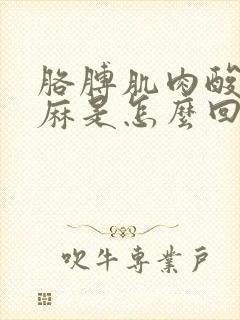 胳膊肌肉酸
麻是怎麼回
吹牛專業戶